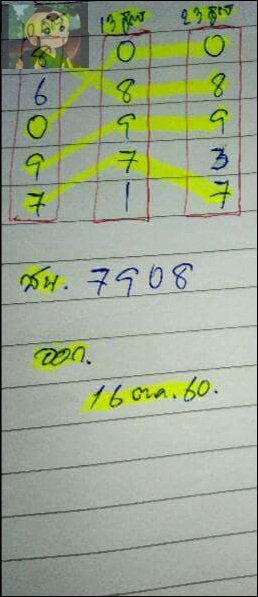 13 สูตร 23 สูตร
8 0 0
6 8 8
0 9 9
9 7 3
7 1 7
ชน. 7908
ออก.
16 ตค. 60.